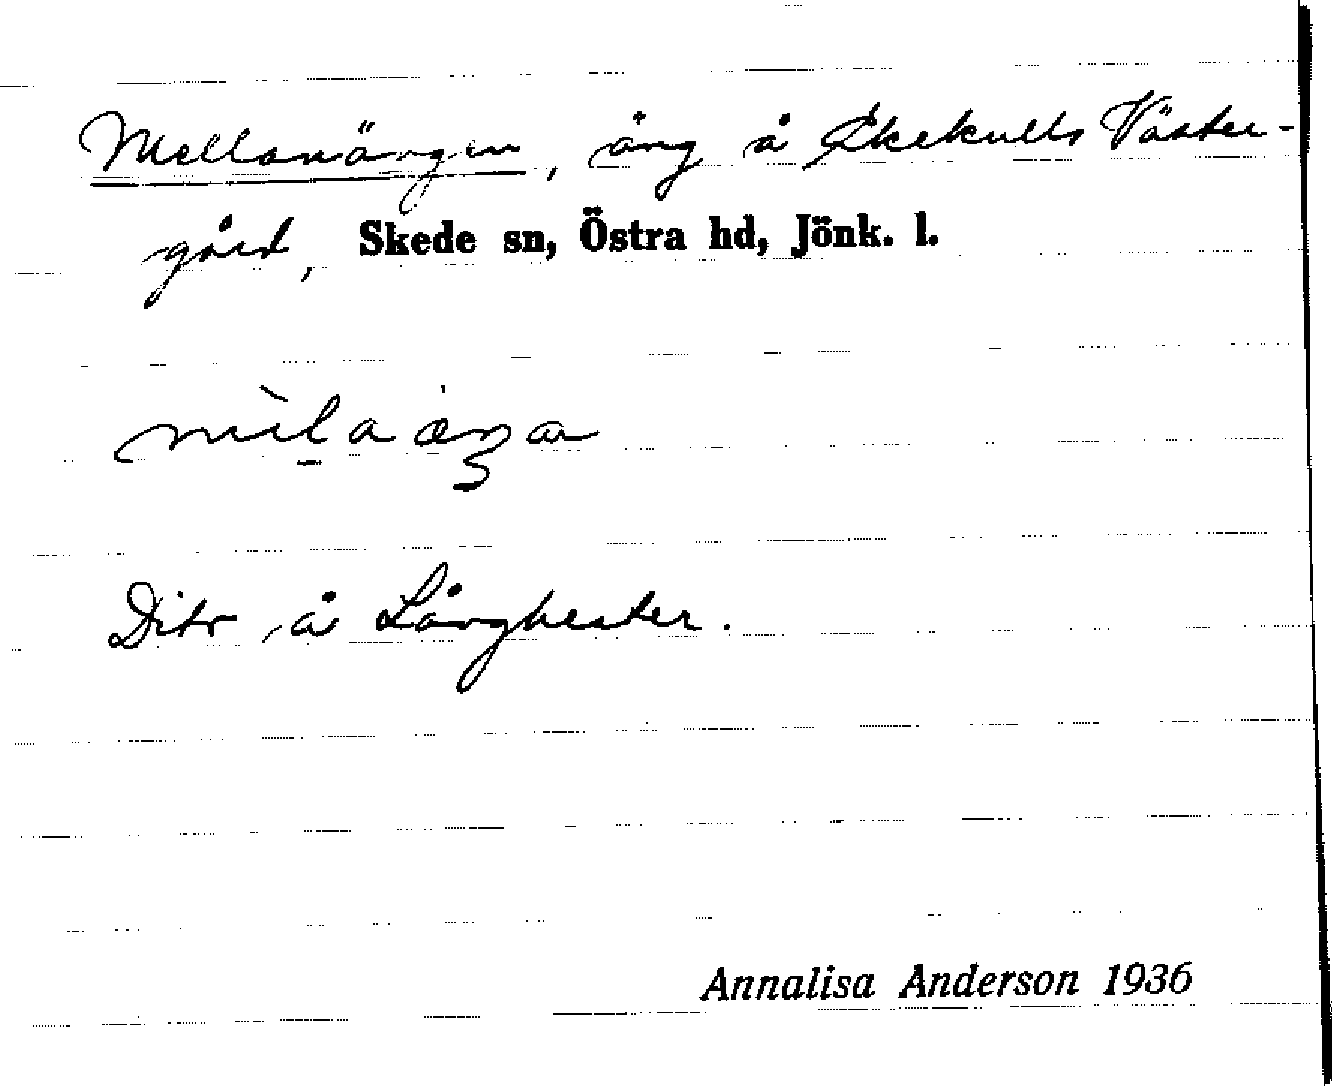 Mellanängen, äng å Ekekulls Väster-
gård, Skede sn, Östra hd, Jönk. l.
Dito å Långhester.
Annalisa Anderson 1936